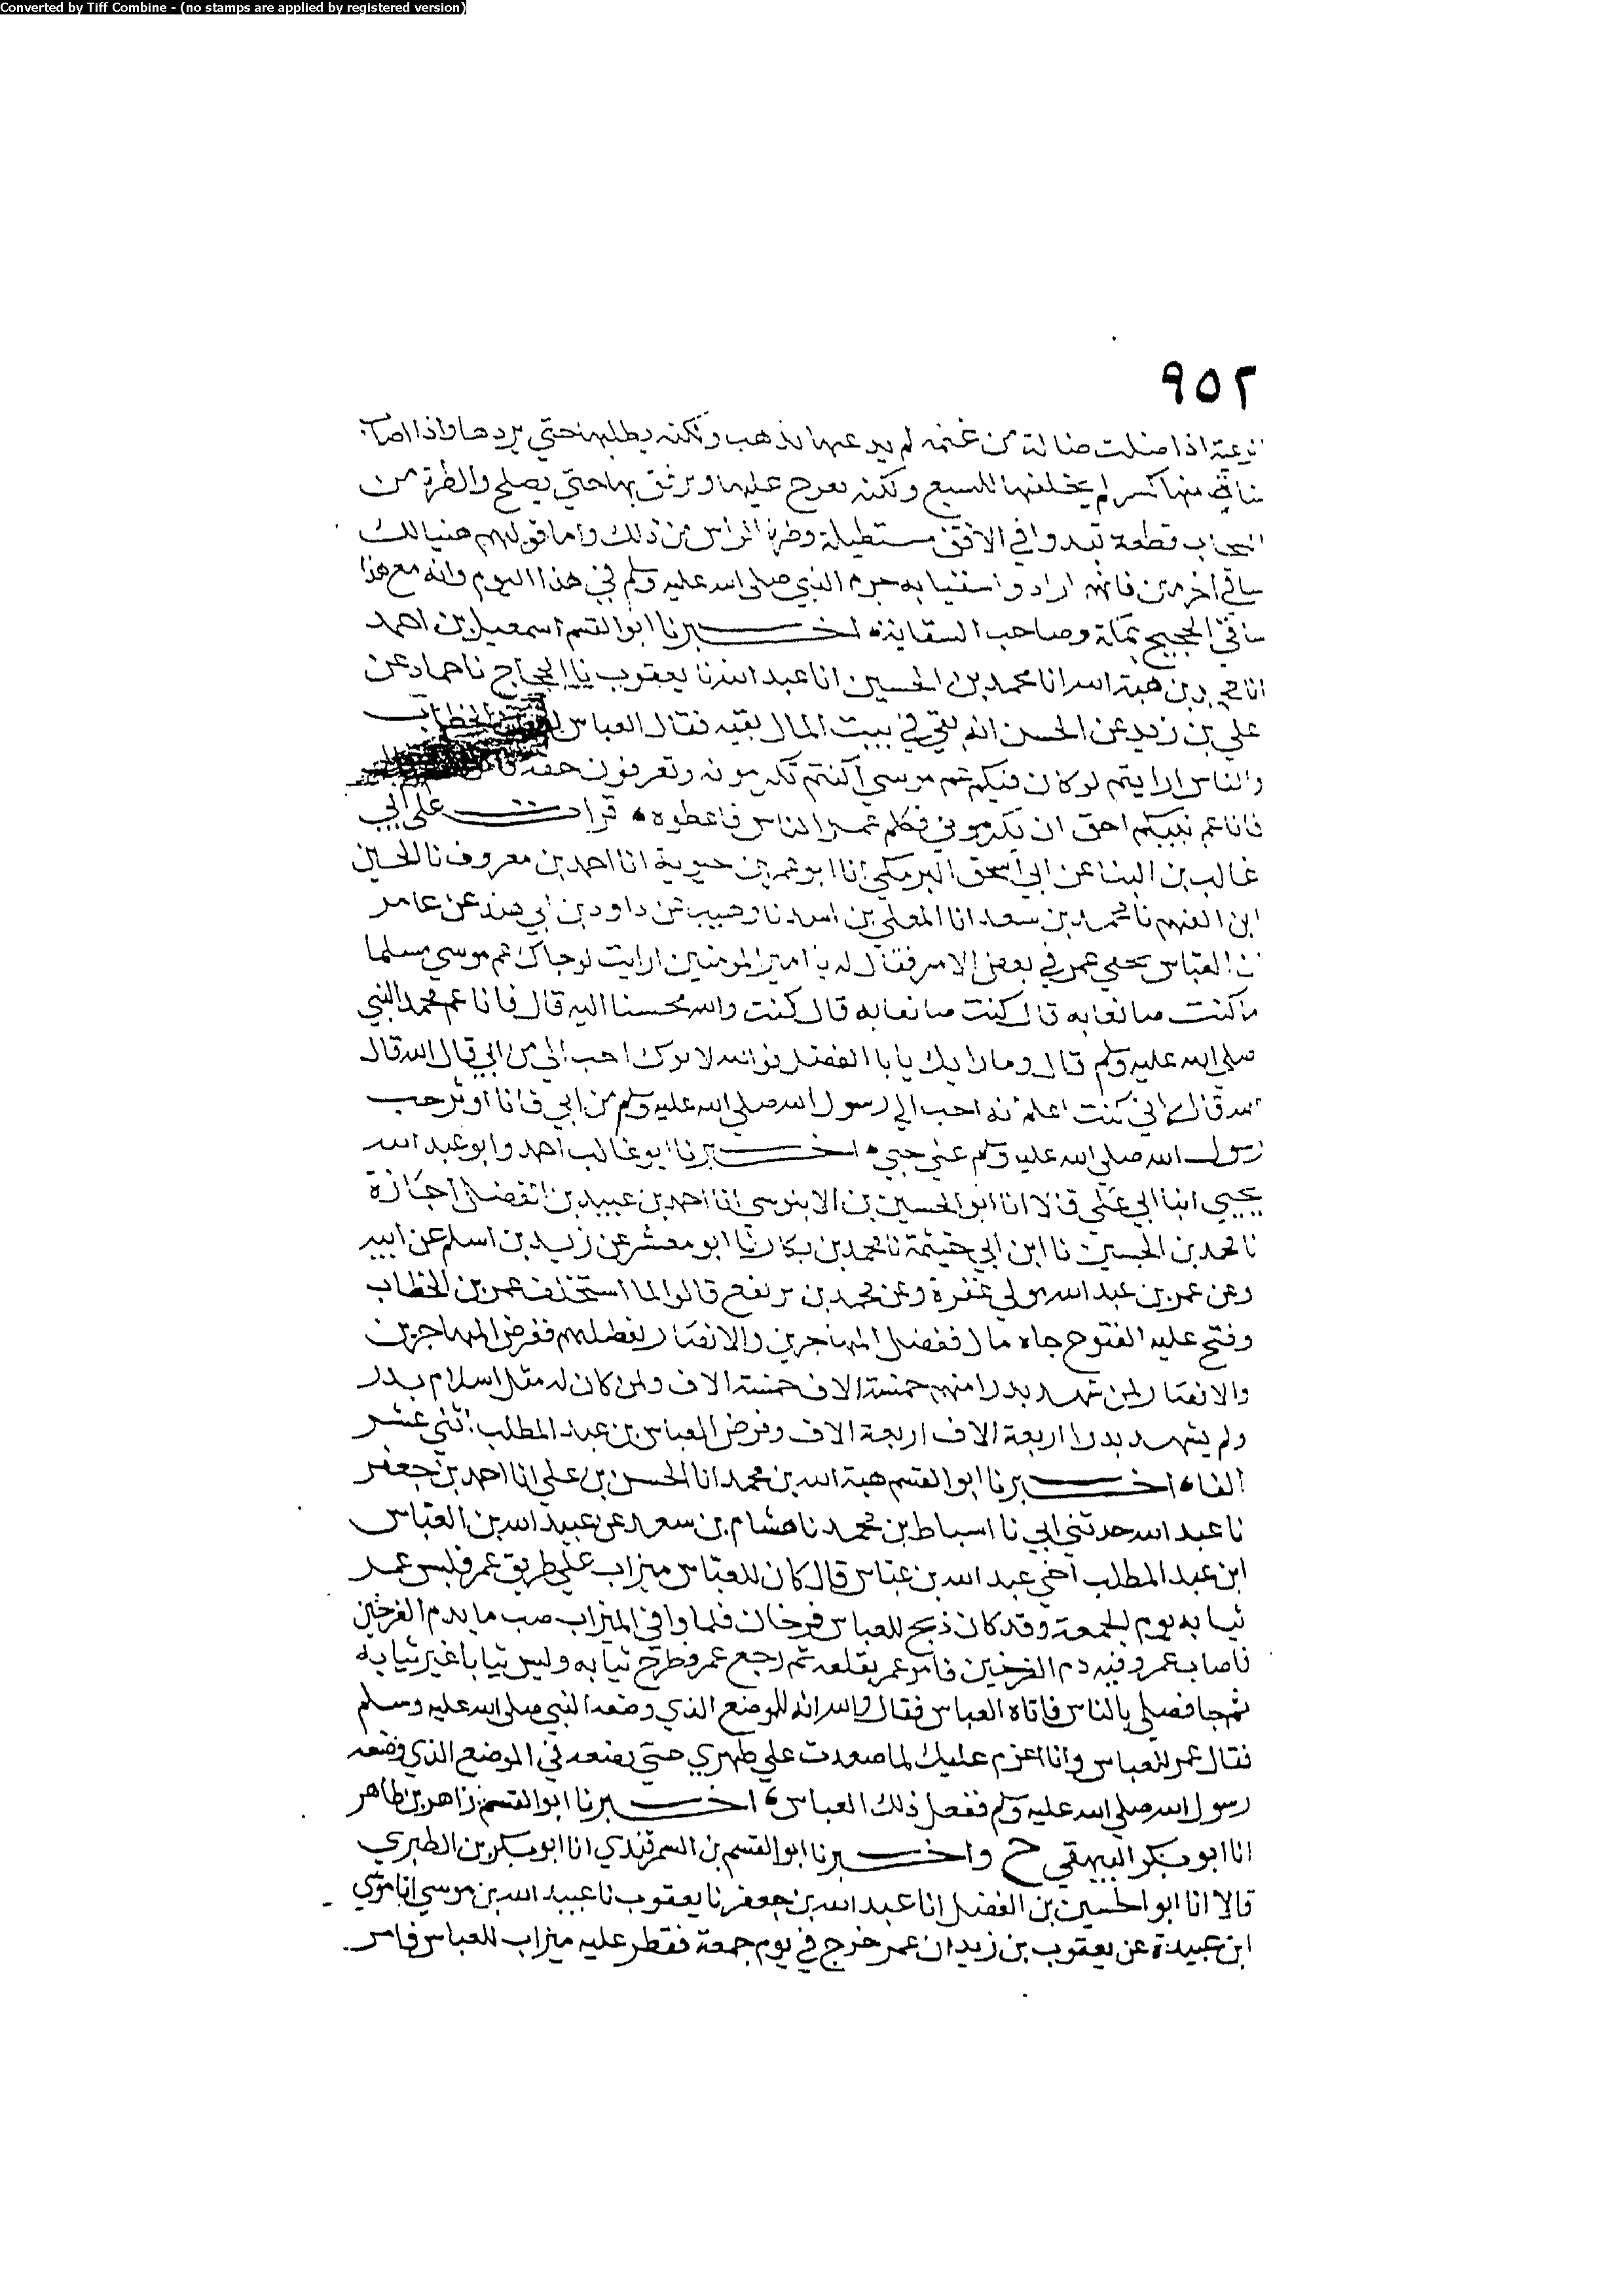 Converted by Tiff Combine - (no stamps are applied by registered version)
٩٥٢
اذا ضلت ضالة من غنمه لم يدعها تذهب ولكنه يطلبها حتى يردها واذا اصاب
منها كسر لم يخلفها للسبع ولكنه يعرج عليها ويرفق بها حتي يصلح والطرة من
السحاب قطعة تبدوا في الافق مستطيلة وطرة الراس من ذلك واما قولهم هنيا لك
ساقي الحرمين فانهم ارادوا استسقيا به حرم النبي صلى الله عليه وسلم في هذا اليوم وانه مع هذا
ساقي الحجيج بمكة وصاحب السقاية اخبرنا ابو القسم اسمعيل بن احمد
انا محمد بن هبة الله انا محمد بن الحسين انا عبد الله نا يعقوب نا الحجاج نا حماد عن
علي بن زيد عن الحسن انه بقي في بيت المال بقيه فقال العباس لعمر بن الخطاب
والناس ارايتم لو كان فيكم عم موسي اكنتم تكرمونه وتعرفون حقه
فانا عم نبيكم احق ان تكرموني فكلم عمر الناس فاعطوه قرات على ابي
غالب بن البنا عن ابي اسحق البرمكي انا ابو عمر بن حيوية انا احمد بن معروف نا الحسين
ابن الفهم نا محمد بن سعد انا المعلي بن اسد نا وهيب عن داود بن ابي هند عن عامر
ان العباس تحفي عمر في بعض الامر فقال له يا امير المومنين ارايت لو جاك عم موسي مسلما
ما كنت صانعا به قال كنت صانعا به قال كنت والله محسنا اليه قال فانا عم محمد النبي
صلى الله عليه وسلم قال وما رايك يا با الفضل فوالله لابوك احب الي من ابي قال الله قال
الله قال لاني كنت اعلم انه احب الي رسول الله صلى الله عليه وسلم من ابي فانا اوثر حب
رسول الله صلى الله عليه وسلم على حبي اخبرنا ابو غالب احمد وابو عبد الله
يحيي ابنا ابي علي قالا انا ابو الحسين بن الابنوسي انا احمد بن عبيد بن الفضل اجازة
نا محمد بن الحسين نا ابن ابي خيثمة نا محمد بن بكار نا ابو معشر عن زيد بن اسلم عن ابيه
وعن عمر بن عبد الله مولي غفرة وعن محمد بن نفع قالوا لما استخلف عمر بن الخطاب
وفتح عليه الفتوح جاه مال ففضل المهاجرين والانصار بفضلهم ففرض للمهاجرين
والانصار لمن شهد بدرا منهم خمسة الاف خمسة الاف ولمن كان له مثل اسلام بدر
ولم يشهد بدرا اربعة الاف اربعة الاف وفرض للعباس بن عبد المطلب اثني عشر
الفا اخبرنا ابو القسم هبة الله بن محمد انا الحسن بن علي انا احمد بن جعفر
نا عبد الله حدثني ابي نا اسباط بن محمد نا هشام بن سعد عن عبيد الله بن العباس
ابن عبد المطلب اخي عبد الله بن عباس قال كان للعباس ميزاب على طريق عمر فلبس عمر
ثيابه يوم الجمعة وقد كان ذبح للعباس فرخان فلما وافي الميزاب صب ما بدم الفرخين
فاصاب عمر وفيه دم الفرخين فامر عمر بقلعه ثم رجع عمر فطرح ثيابه ولبس ثيابا غير ثيابه
ثم جا فصلي بالناس فاتاه العباس فقال والله انه للموضع الذي وضعه النبي صلى الله عليه وسلم
فقال عمر للعباس وانا اعزم عليك لما صعدت علي ظهري حتي تضعه في الموضع الذي وضعه
رسول الله صلى الله عليه وسلم ففعل ذلك العباس اخبرنا ابو القسم زاهر بن طاهر
انا ابو بكر البيهقي ح واخبرنا ابو القسم بن السمرقندي انا ابو بكر بن الطبري
قالا انا ابو الحسين بن الفضل انا عبد الله بن جعفر نا يعقوب نا عبيد الله بن موسي انا موسي
ابن عبيدة عن يعقوب بن زيد ان عمر خرج في يوم جمعة فقطر عليه ميزاب للعباس فامر